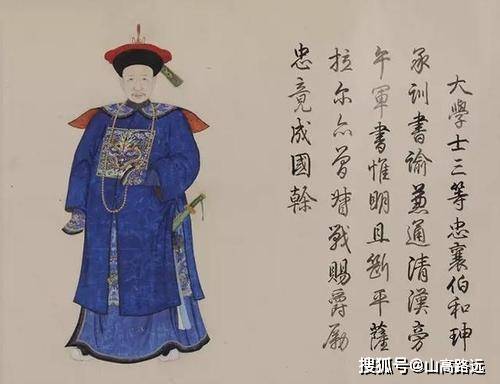 大學士三等忠襄伯和珅
承訓書諭兼通清漢旁
午軍書惟明且斷平薩
拉尔亦曾督戰賜爵勵
忠竟成國幹
搜狐号@山高路远